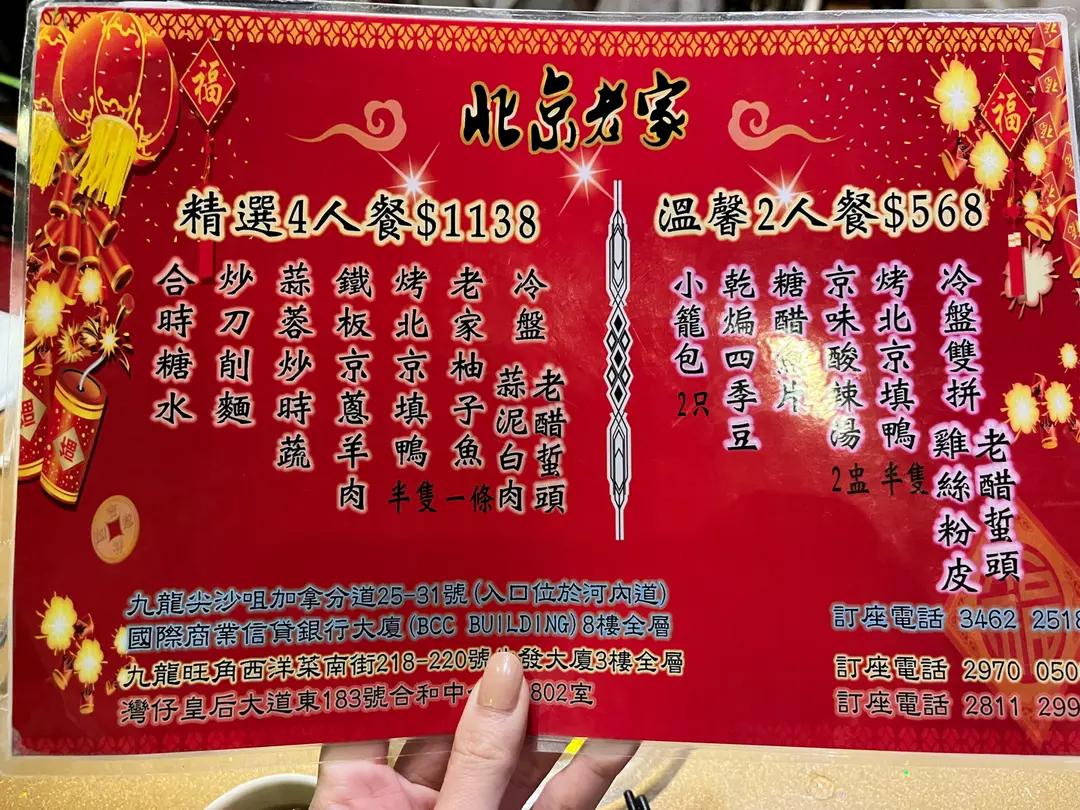 北京老家
精選4人餐$1138
冷盤
老醋蜇頭
蒜泥白肉
老家柚子魚一條
烤北京填鴨半隻
鐵板京蔥羊肉
蒜蓉炒時蔬
炒刀削麵
合時糖水
溫馨2人餐$568
冷盤雙拼
老醋蜇頭
雞絲粉皮
烤北京填鴨半隻
京味酸辣湯2盅
糖醋魚片
乾煸四季豆
小籠包2只
九龍尖沙咀加拿分道25-31號(入口位於河內道)
國際商業信貸銀行大廈(BCC BUILDING)8樓全層
訂座電話 3462 2518
九龍旺角西洋菜南街218-220號 發大廈3樓全層
訂座電話 2970 050
灣仔皇后大道東183號合和中 802室
訂座電話 2811 299
福
福